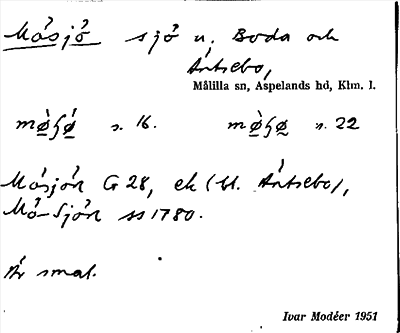 Måsjö sjö u. Boda och
Årtsebo,
Målilla sn, Aspelands hd, Klm. l.
s. 16. s. 22
Måsjön G 28, ek (bl. Årtsebo),
Mö-Sjön ss 1780.
Är smal.
Ivar Modéer 1951